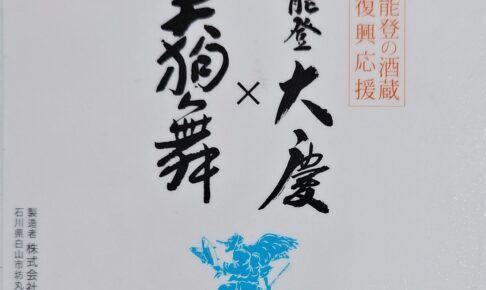 能登の酒蔵
復興応援
能登 大慶
×
天狗舞
製造者 株式会社
石川県白山市坊丸